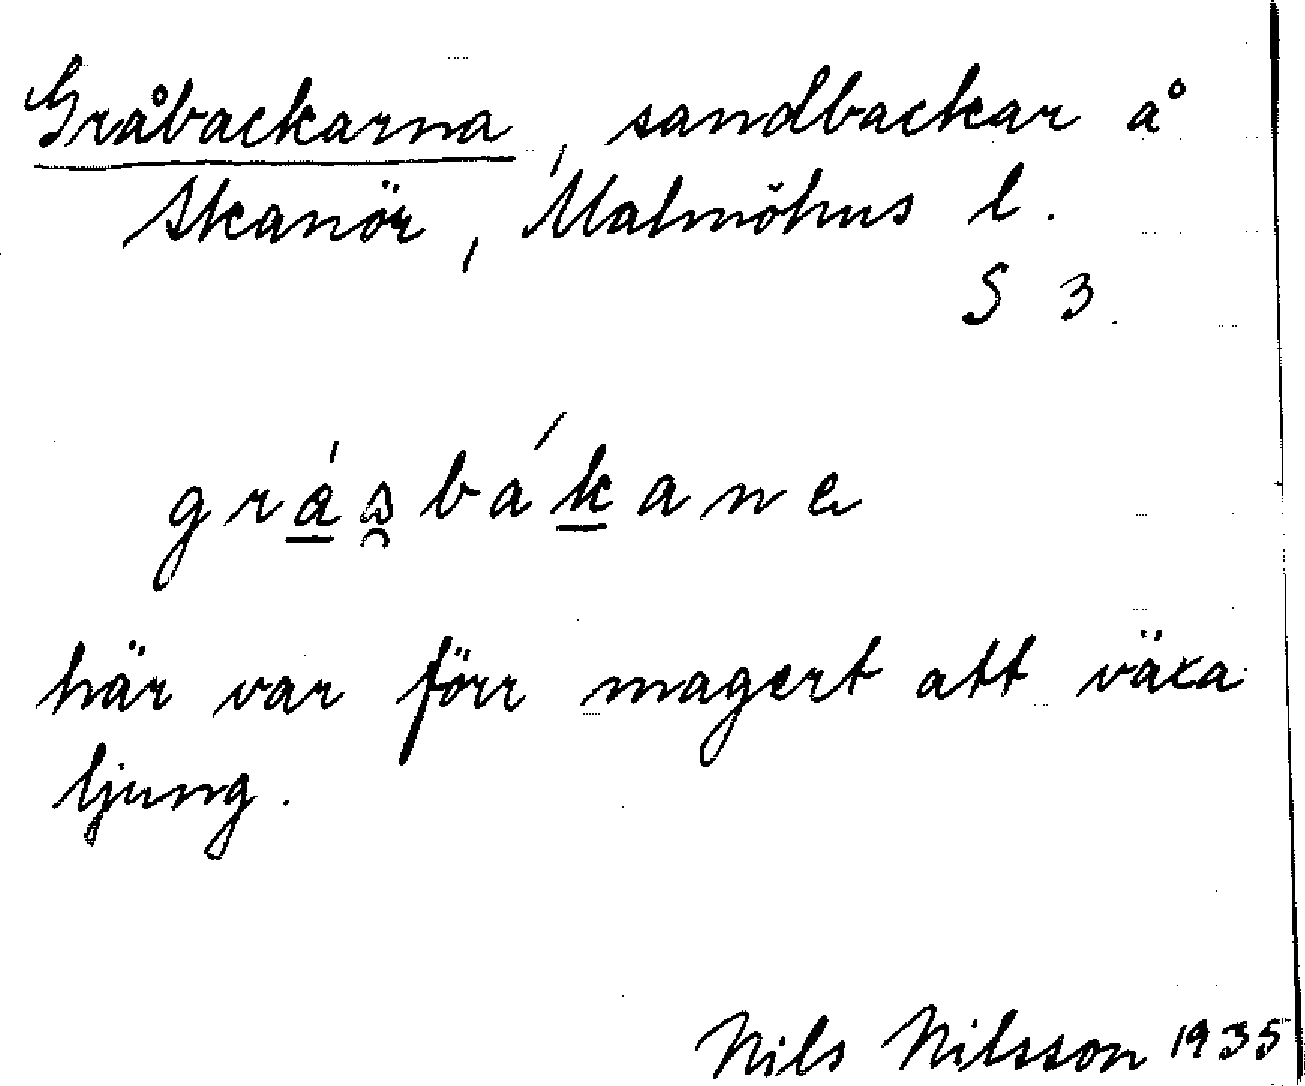 Gråbackarna, sandbackar å
Skanör, Malmöhus l.
S 3.
här var förr magert att växa
ljung.
Nils Nilsson 1935